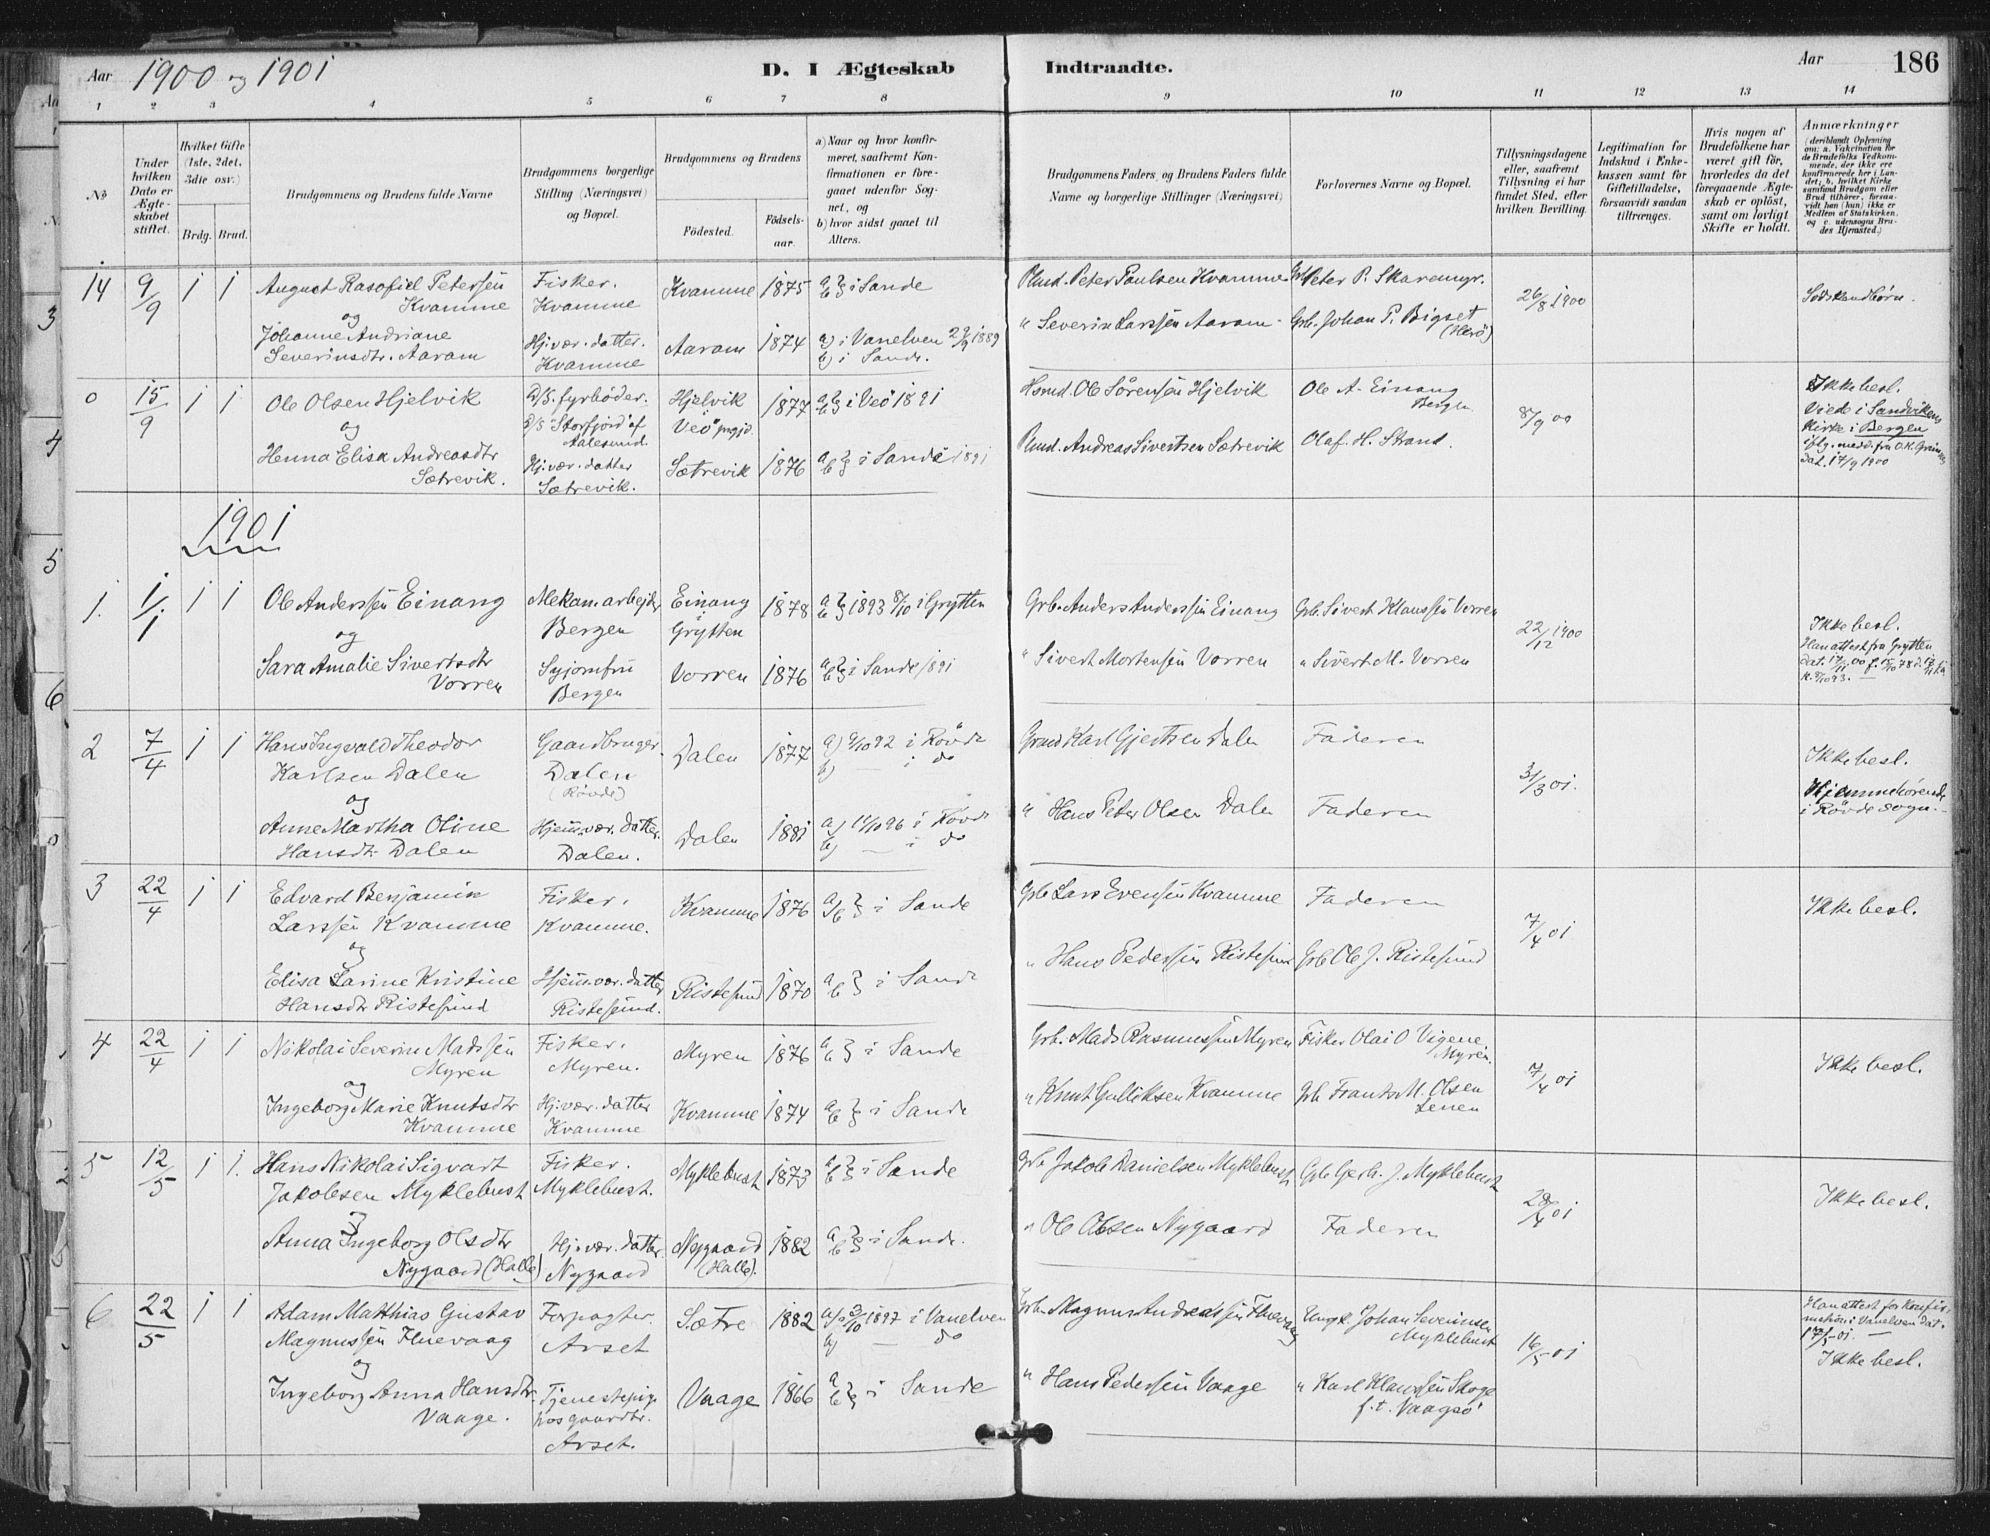 Aar 1900 og 1901
D. I Ægteskab Indtraadte.
Aar 186
1 2 3 4 5 6 7 8 9 10 11 12 13 14
No
Under hvilken Dato er Ægte-skabet stiftet.
Hvilket Gifte (1ste, 2det, 3die osv.)
Brdg. Brud.
Brudgommens og Brudens fulde Navne
Brudgommens borgerlige Stilling (Næringsvei) og Bopæl.
Brudgommens og Brudens
Födested.
Födsels-aar.
a) Naar og hvor konfir-meret, saafremt Kon-firmationen er fore-gaaet udenfor Sog-net, og
b) hvor sidst gaaet til Alters.
Brudgommens Faders og Brudens Faders fulde Navne og borgerlige Stillinger (Næringsvei)
Forlovernes Navne og Bopæl.
Tillysningsdagene eller, saafremt Tillysning ei har fundet Sted, efter hvilken Bevilling.
Legitimation for Indskud i Enke-kassen samt for Giftetilladelse, forsaavidt saadan tiltrænges.
Hvis nogen af Brudefolkene har været gift för, hvorledes da det foregaaende Ægte-skab er oplöst, samt om lovligt Skifte er holdt.
Anmærkninger (deriblandt Oplysning om: a. Vakcination for de Brudefolks Vedkom-mende, der ikke ere konfirmerede her i Lan-det; b. hvilket Kirke-samfund Brudgom eller Brud tilhører, forsaa-vidt han (hun) ikke er Medlem af Statskirken, og c. udensogns Bru-des Hjemsted.)
14 9/9 1 1 August Petersen Kvamme Fisker. Kvamme Kvamme 1875 a b i Sande Peter Paulsen Kvamme Peter P. Skaremyr. 26/8 1900 Södskendbörn.
og
Johanne Andriane Severinsdtr. Aaram Hj.vær. datter. Kvamme Aaram 1874 a) i Vanelven 29/9 1889 b) i Sande. " Severin Larssen Aaram Grb. Johan P. Bigset (Herö)
0 15/9 1 1 Ole Olsen Hjelvik D/S. fyrböder. D/S "Storfjord" af Aalesund. Hjelvik Veö prgjd. 1877 a b i Veö 1891 Hsmd. Ole Sörensen Hjelvik Ole A. Einang Bergen 8/9 00 Ikke besl. Viede i Sandvikens Kirke i Bergen
og
Henna Elisa Andreasdtr Sætrevik. Hj.vær. datter Sætrevik. Sætrevik 1876 a b i Sande 1891 Andreas Sivertsen Sætrevik Olaf. H. Strand. dat. 17/9 1900
1901
1. 1/1 1 1 Ole Anderssen Einang Mekan. arbejder Bergen Einang Grytten 1878 a b 1893 8/10 i Grytten Grb. Anders Anderssen Einang Grb. Sivert Klaussen Vorren 22/12 1900 Ikke besl.
og
Sara Amalie Sivertsdtr Vorren Syjomfru Bergen Vorren 1876 a b i Sande 1891 " Sivert Mortensen Vorren " Sivert M. Vorren Han attest fra Grytten
2 7/4 1 1 Hans Ingvald Theodor Karlsen Dalen Gaardbruger. Dalen (Rövde) Dalen 1877 a) 9/10 92 i Rövde b) — i do Karl Gjertsen Dalen Faderen 31/3 01. Ikke besl. Hjemmehörende i Rövde sogn.
og
Anne Martha Oline Hansdtr Dalen Hjem.vær. datter. Dalen. Dalen 1881 a) 11/10 96 i Rövde b) — i do " Hans Peter Olsen Dalen Faderen
3 22/4 1 1 Edvard Benjamin Larssen Kvamme Fisker. Kvamme. Kvamme 1876 a b i Sande Grb Lars Evensen Kvamme Faderen 7/4 01 Ikke besl.
og
Elisa Larine Kristine Hansdtr Ristesund Hjem.vær. datter Ristesund. Ristesund 1870 a b i Sande " Hans Pederssen Ristesund Grb Ole J. Ristesund
4 22/4 1 1 Nikolai Severin Madssen Myren Fisker. Myren. Myren 1876 a b i Sande Grb. Mads Rasmussen Myren Fisker Olai O Vigene. Myren. 7/4 01 Ikke besl.
og
Ingeborg Marie Knutsdtr Kvamme Hj.vær. datter Kvamme Kvamme 1874 a b i Sande " Knut Gulliksen Kvamme Grb Frants M. Olsen
5 12/5 1 1. Hans Nikolai Sigvart Jakobsen Myklebust Fisker. Myklebust. Myklebust 1873 a b i Sande Grb Jakob Danielsen Myklebust Grb Gerh. J. Myklebust 28/4 01 Ikke besl.
og
Anna Ingeborg Olsdtr Nygaard (Halle) Hj.vær. datter. Nygaard Nygaard (Halle). 1882 a b i Sande. " Ole Olsen Nygaard Faderen
6 22/5 1 1 Adam Matthias Gustav Magnussen Fluevaag Forpagter. Arset Sætre 1882 a) 3/10 1897 i Vanelven b) — do Grb. Magnus Andreassen Fluevaag Ungk. Johan Severinsen Myklebust 16/5 01 Han attest for konfir-mation i Vanelven dat. Ikke besl.
og
Ingeborg Anna Hansdtr. Vaage. Tjenestepige Arset. Vaage 1866 a b i Sande " Hans Pederssen Vaage " Karl Klaussen Skoge f.t. Vaagsö